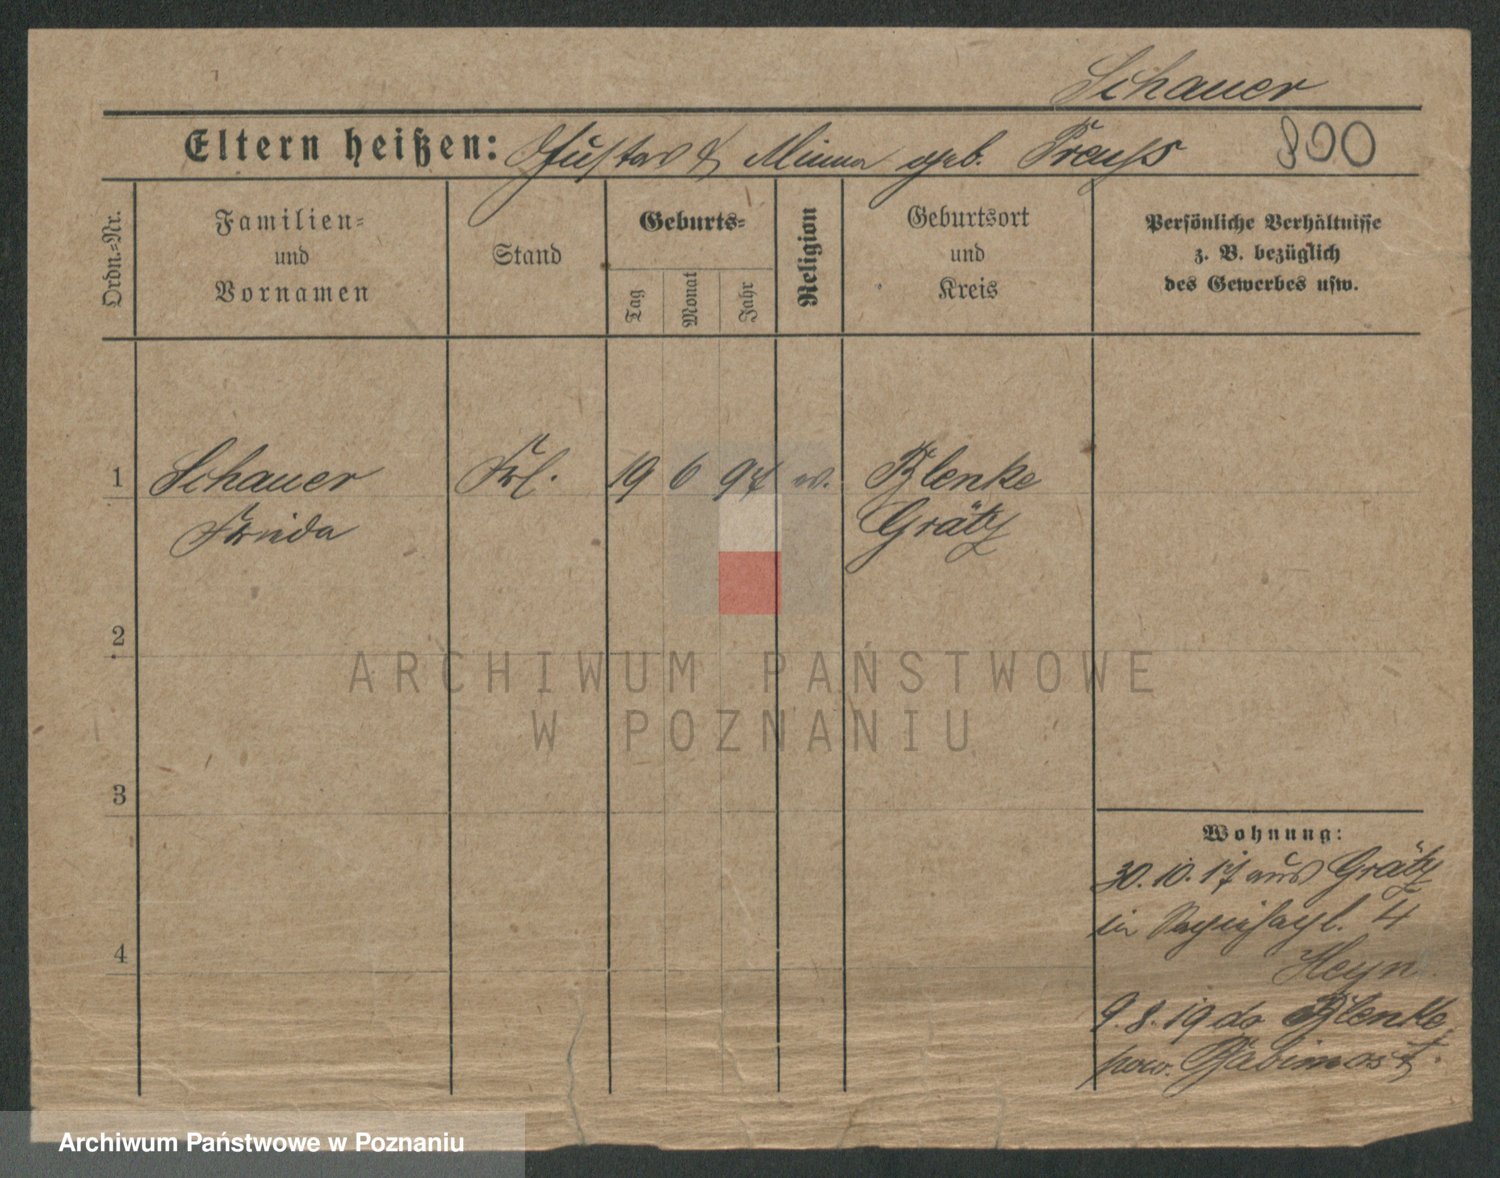 Schauer
Eltern heißen: Gustav & Minna geb. Preuss 800
Ordn.-Nr.
Familien-
und
Vornamen
Stand
Geburts-
Tag
Monat
Jahr
Religion
Geburtsort
und
Kreis
Persönliche Verhältnisse
z. B. bezüglich
des Gewerbes usw.
1 Schauer Frl. 19 6 97 ev. Blenke
Frieda Grätz
2
3
4
Wohnung:
30.10.17 aus Grätz
in 4
Heyn
9.8.19 do Blenke
pow. Babimost.
ARCHIWUM PAŃSTWOWE
W POZNANIU
Archiwum Państwowe w Poznaniu